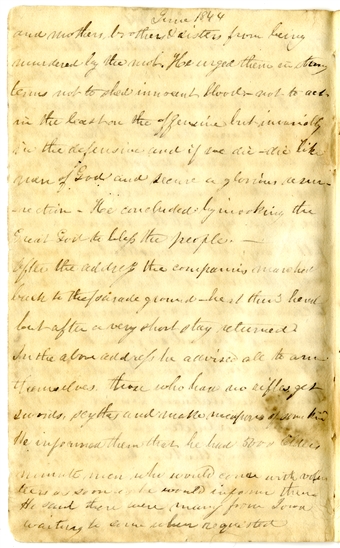 June 1844
and mothers, brothers & sisters from being
murdered by the mob. He urged them in strong
terms not to shed innocent blood—not to act
in the least on the offensive but invariably
in the defensive and if we die—die like
men of God and secure a glorious resur-
rection—He concluded by invoking the
Great God to bless the people.—
After the address the companies marched
back to the parade ground—
but after a very short stay returned
In the above address he advised all to arm
themselves. those who had no rifles get
swords, scythes and make weapons of some kind
He informed them that he had 5000 Elders
minute men who would come with volun
teers as soon as he would inform them
He said there were many from Iowa
waiting to come when requested